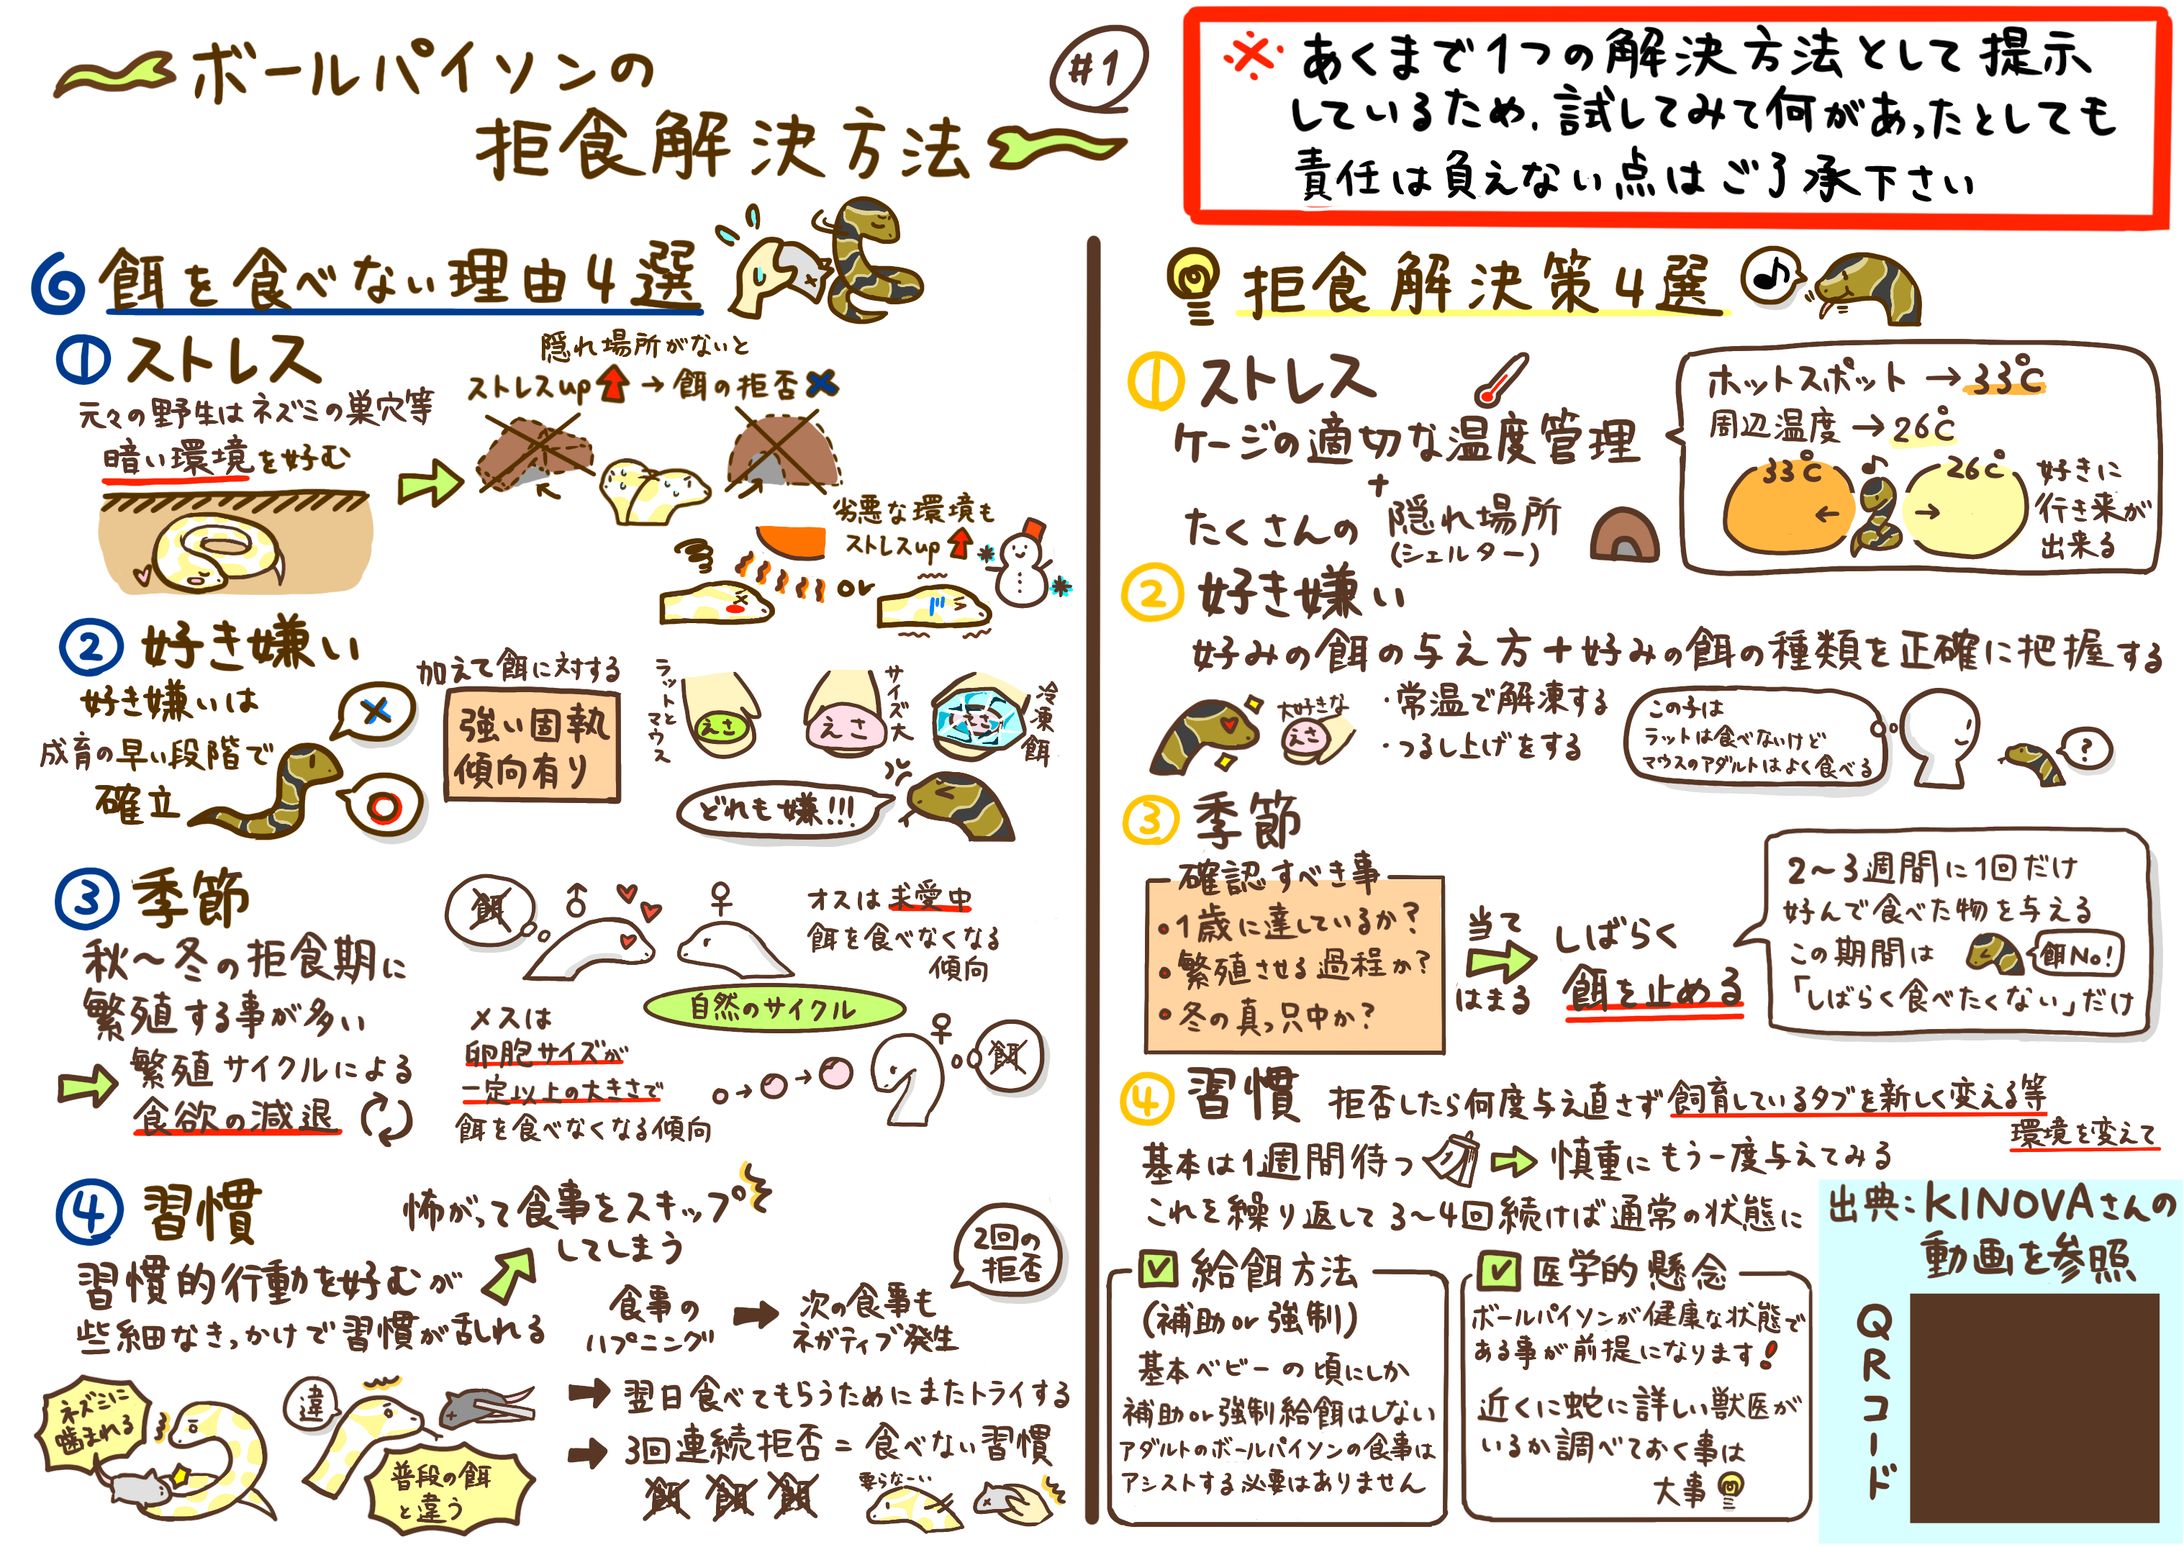 ボールパイソンの
拒食解決方法
#1
※あくまで1つの解決方法として提示
しているため、試してみて何があったとしても
責任は負えない点はご了承下さい
餌を食べない理由4選
① ストレス
元々の野生はネズミの巣穴等
暗い環境を好む
隠れ場所がないと
ストレスup → 餌の拒否
劣悪な環境も
ストレスup
or
② 好き嫌い
好き嫌いは
成育の早い段階で
確立
加えて餌に対する
強い固執
傾向有り
ラットとマウス
えさ
サイズ大
えさ
冷凍餌
えさ
どれも嫌!!!
③ 季節
秋〜冬の拒食期に
繁殖する事が多い
繁殖サイクルによる
食欲の減退
餌
♂
♀
オスは求愛中
餌を食べなくなる
傾向
自然のサイクル
メスは
卵胞サイズが
一定以上の大きさで
餌を食べなくなる傾向
♀
餌
④ 習慣
習慣的行動を好むが
些細なきっかけで習慣が乱れる
怖がって食事をスキップ
してしまう
食事の
ハプニング
次の食事も
ネガティブ発生
2回の
拒否
翌日食べてもらうためにまたトライする
3回連続拒否=食べない習慣
餌 餌 餌
要らなーい
ネズミに
噛まれる
違
普段の餌
と違う
拒食解決策4選
① ストレス
ケージの適切な温度管理
+
たくさんの 隠れ場所
(シェルター)
ホットスポット → 33℃
周辺温度 → 26℃
33℃
26℃
好きに
行き来が
出来る
② 好き嫌い
好みの餌の与え方+好みの餌の種類を正確に把握する
大好きな
えさ
・常温で解凍する
・つるし上げをする
この子は
ラットは食べないけど
マウスのアダルトはよく食べる
?
③ 季節
確認すべき事
・1歳に達しているか?
・繁殖させる過程か?
・冬の真っ只中か?
当て
はまる
しばらく
餌を止める
2〜3週間に1回だけ
好んで食べた物を与える
この期間は
餌No!
「しばらく食べたくない」だけ
④ 習慣
拒否したら何度与え直さず飼育しているタブを新しく変える等
環境を変えて
基本は1週間待つ
慎重にもう一度与えてみる
これを繰り返して3〜4回続けば通常の状態に
給餌方法
(補助or強制)
基本ベビーの頃にしか
補助or強制給餌はしない
アダルトのボールパイソンの食事は
アシストする必要はありません
医学的懸念
ボールパイソンが健康な状態で
ある事が前提になります!
近くに蛇に詳しい獣医が
いるか調べておく事は
大事
出典:KINOVAさんの
動画を参照
QRコード